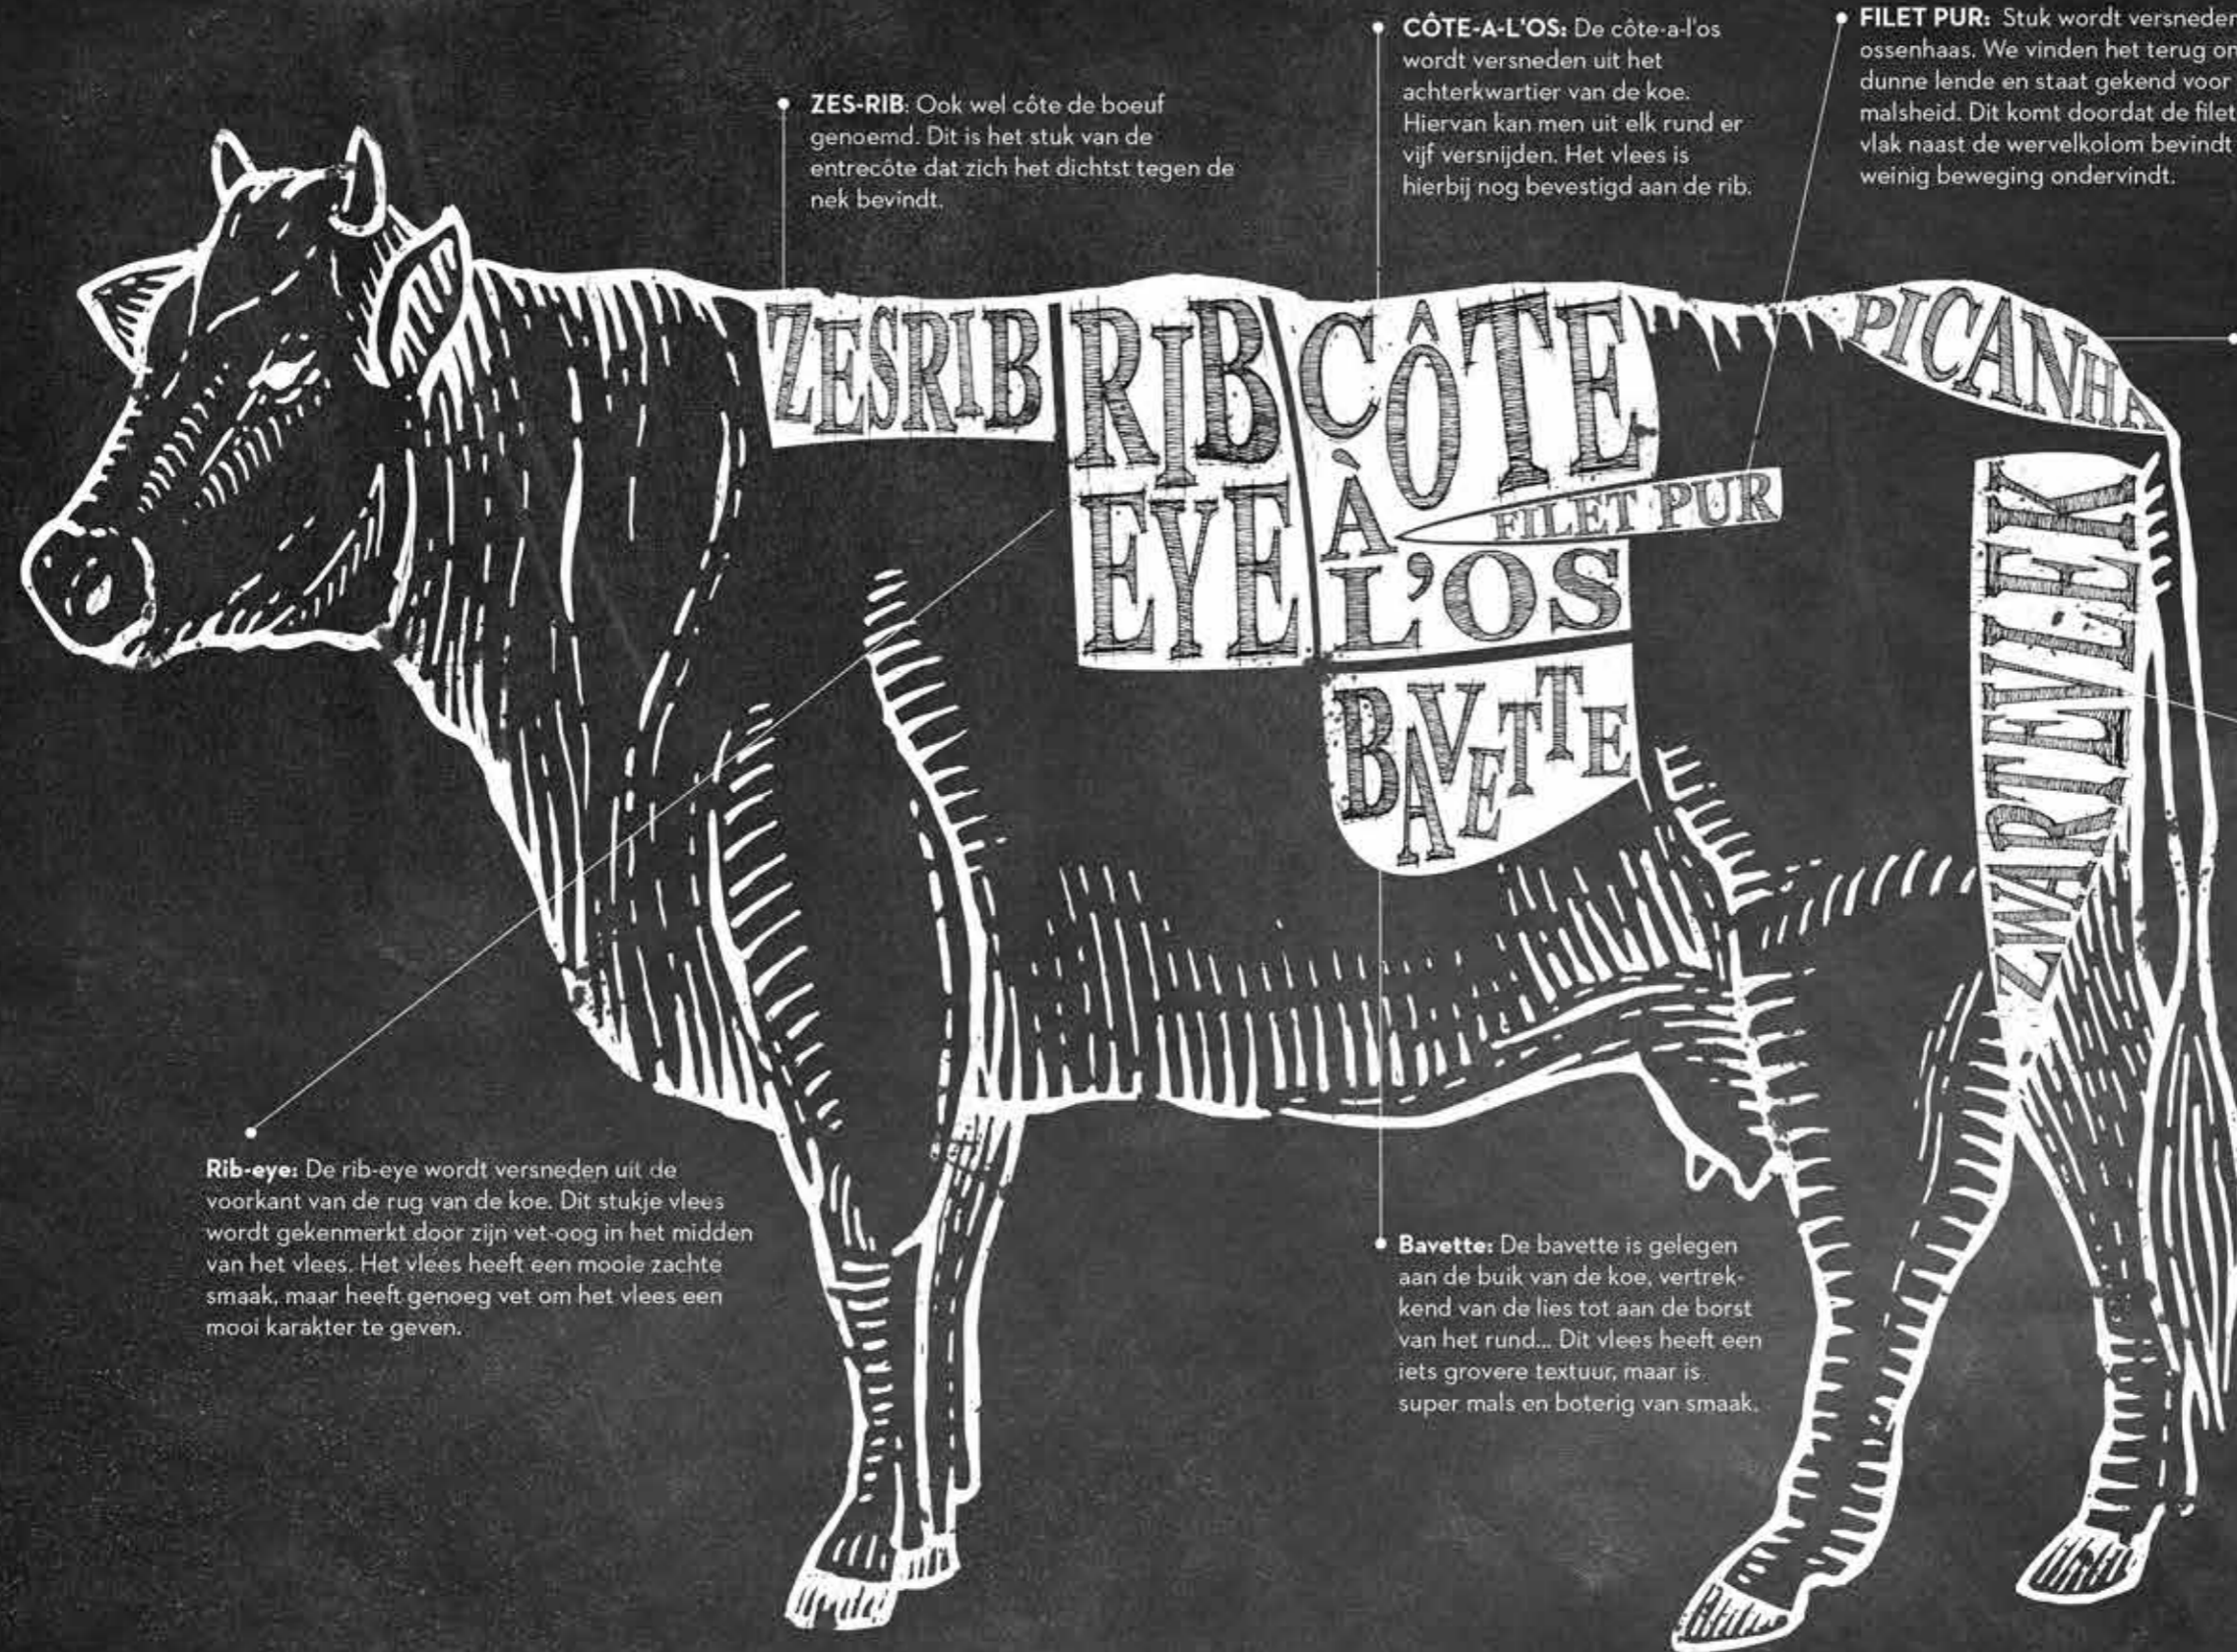 ZES-RIB: Ook wel côte de boeuf
genoemd. Dit is het stuk van de
entrecôte dat zich het dichtst tegen de
nek bevindt.
CÔTE-A-L'OS: De côte-a-l'os
wordt versneden uit het
achterkwartier van de koe.
Hiervan kan men uit elk rund er
vijf versnijden. Het vlees is
hierbij nog bevestigd aan de rib.
FILET PUR: Stuk wordt versneden
ossenhaas. We vinden het terug
dunne lende en staat gekend voor
malsheid. Dit komt doordat de filet
vlak naast de wervelkolom bevindt
weinig beweging ondervindt.
ZESRIB
RIB
EYE
CÔTE
À
L'OS
FILET PUR
PICANHA
BAVETTE
ZWARTEVLEK
Rib-eye: De rib-eye wordt versneden uit de
voorkant van de rug van de koe. Dit stukje vlees
wordt gekenmerkt door zijn vet-oog in het midden
van het vlees. Het vlees heeft een mooie zachte
smaak, maar heeft genoeg vet om het vlees een
mooi karakter te geven.
Bavette: De bavette is gelegen
aan de buik van de koe, vertrek-
kend van de lies tot aan de borst
van het rund... Dit vlees heeft een
iets grovere textuur, maar is
super mals en boterig van smaak.